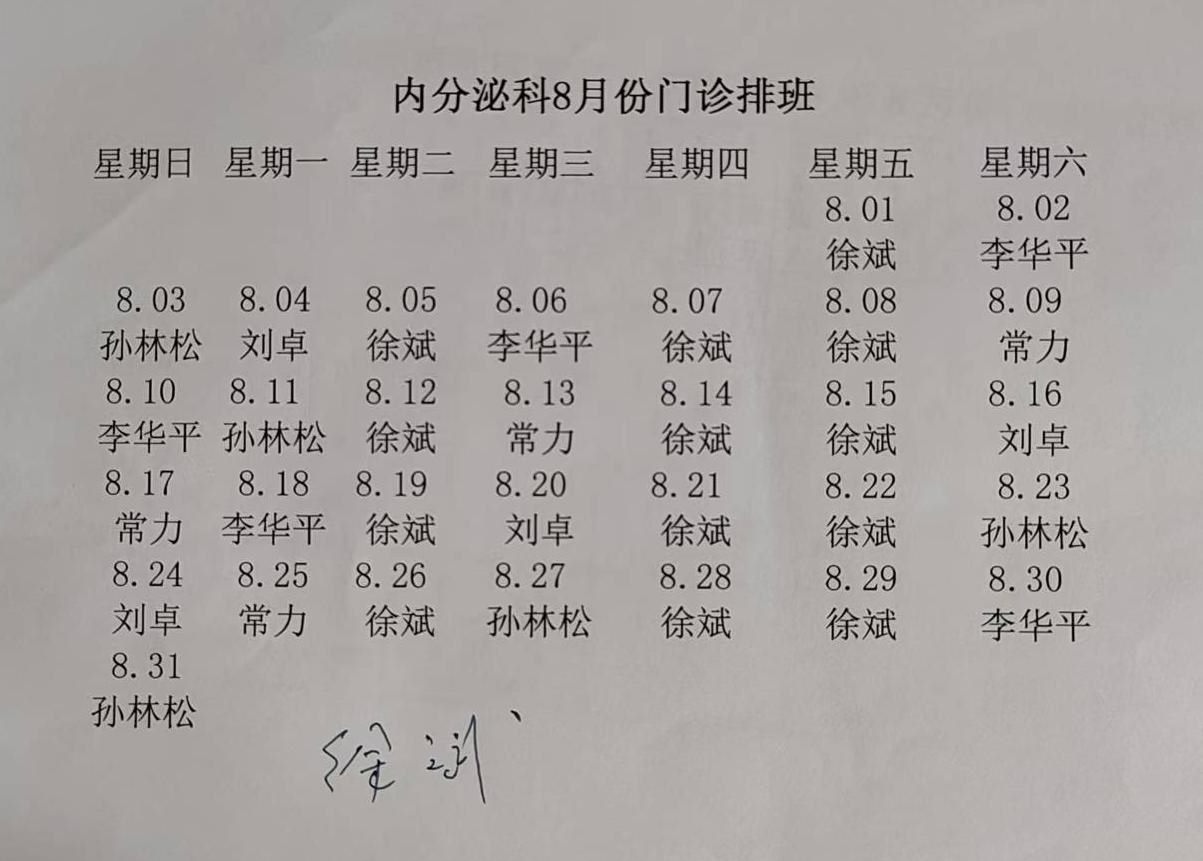 内分泌科8月份门诊排班
星期日 星期一 星期二 星期三 星期四 星期五 星期六
8.01 8.02
徐斌 李华平
8.03 8.04 8.05 8.06 8.07 8.08 8.09
孙林松 刘卓 徐斌 李华平 徐斌 徐斌 常力
8.10 8.11 8.12 8.13 8.14 8.15 8.16
李华平 孙林松 徐斌 常力 徐斌 徐斌 刘卓
8.17 8.18 8.19 8.20 8.21 8.22 8.23
常力 李华平 徐斌 刘卓 徐斌 徐斌 孙林松
8.24 8.25 8.26 8.27 8.28 8.29 8.30
刘卓 常力 徐斌 孙林松 徐斌 徐斌 李华平
8.31
孙林松
徐斌